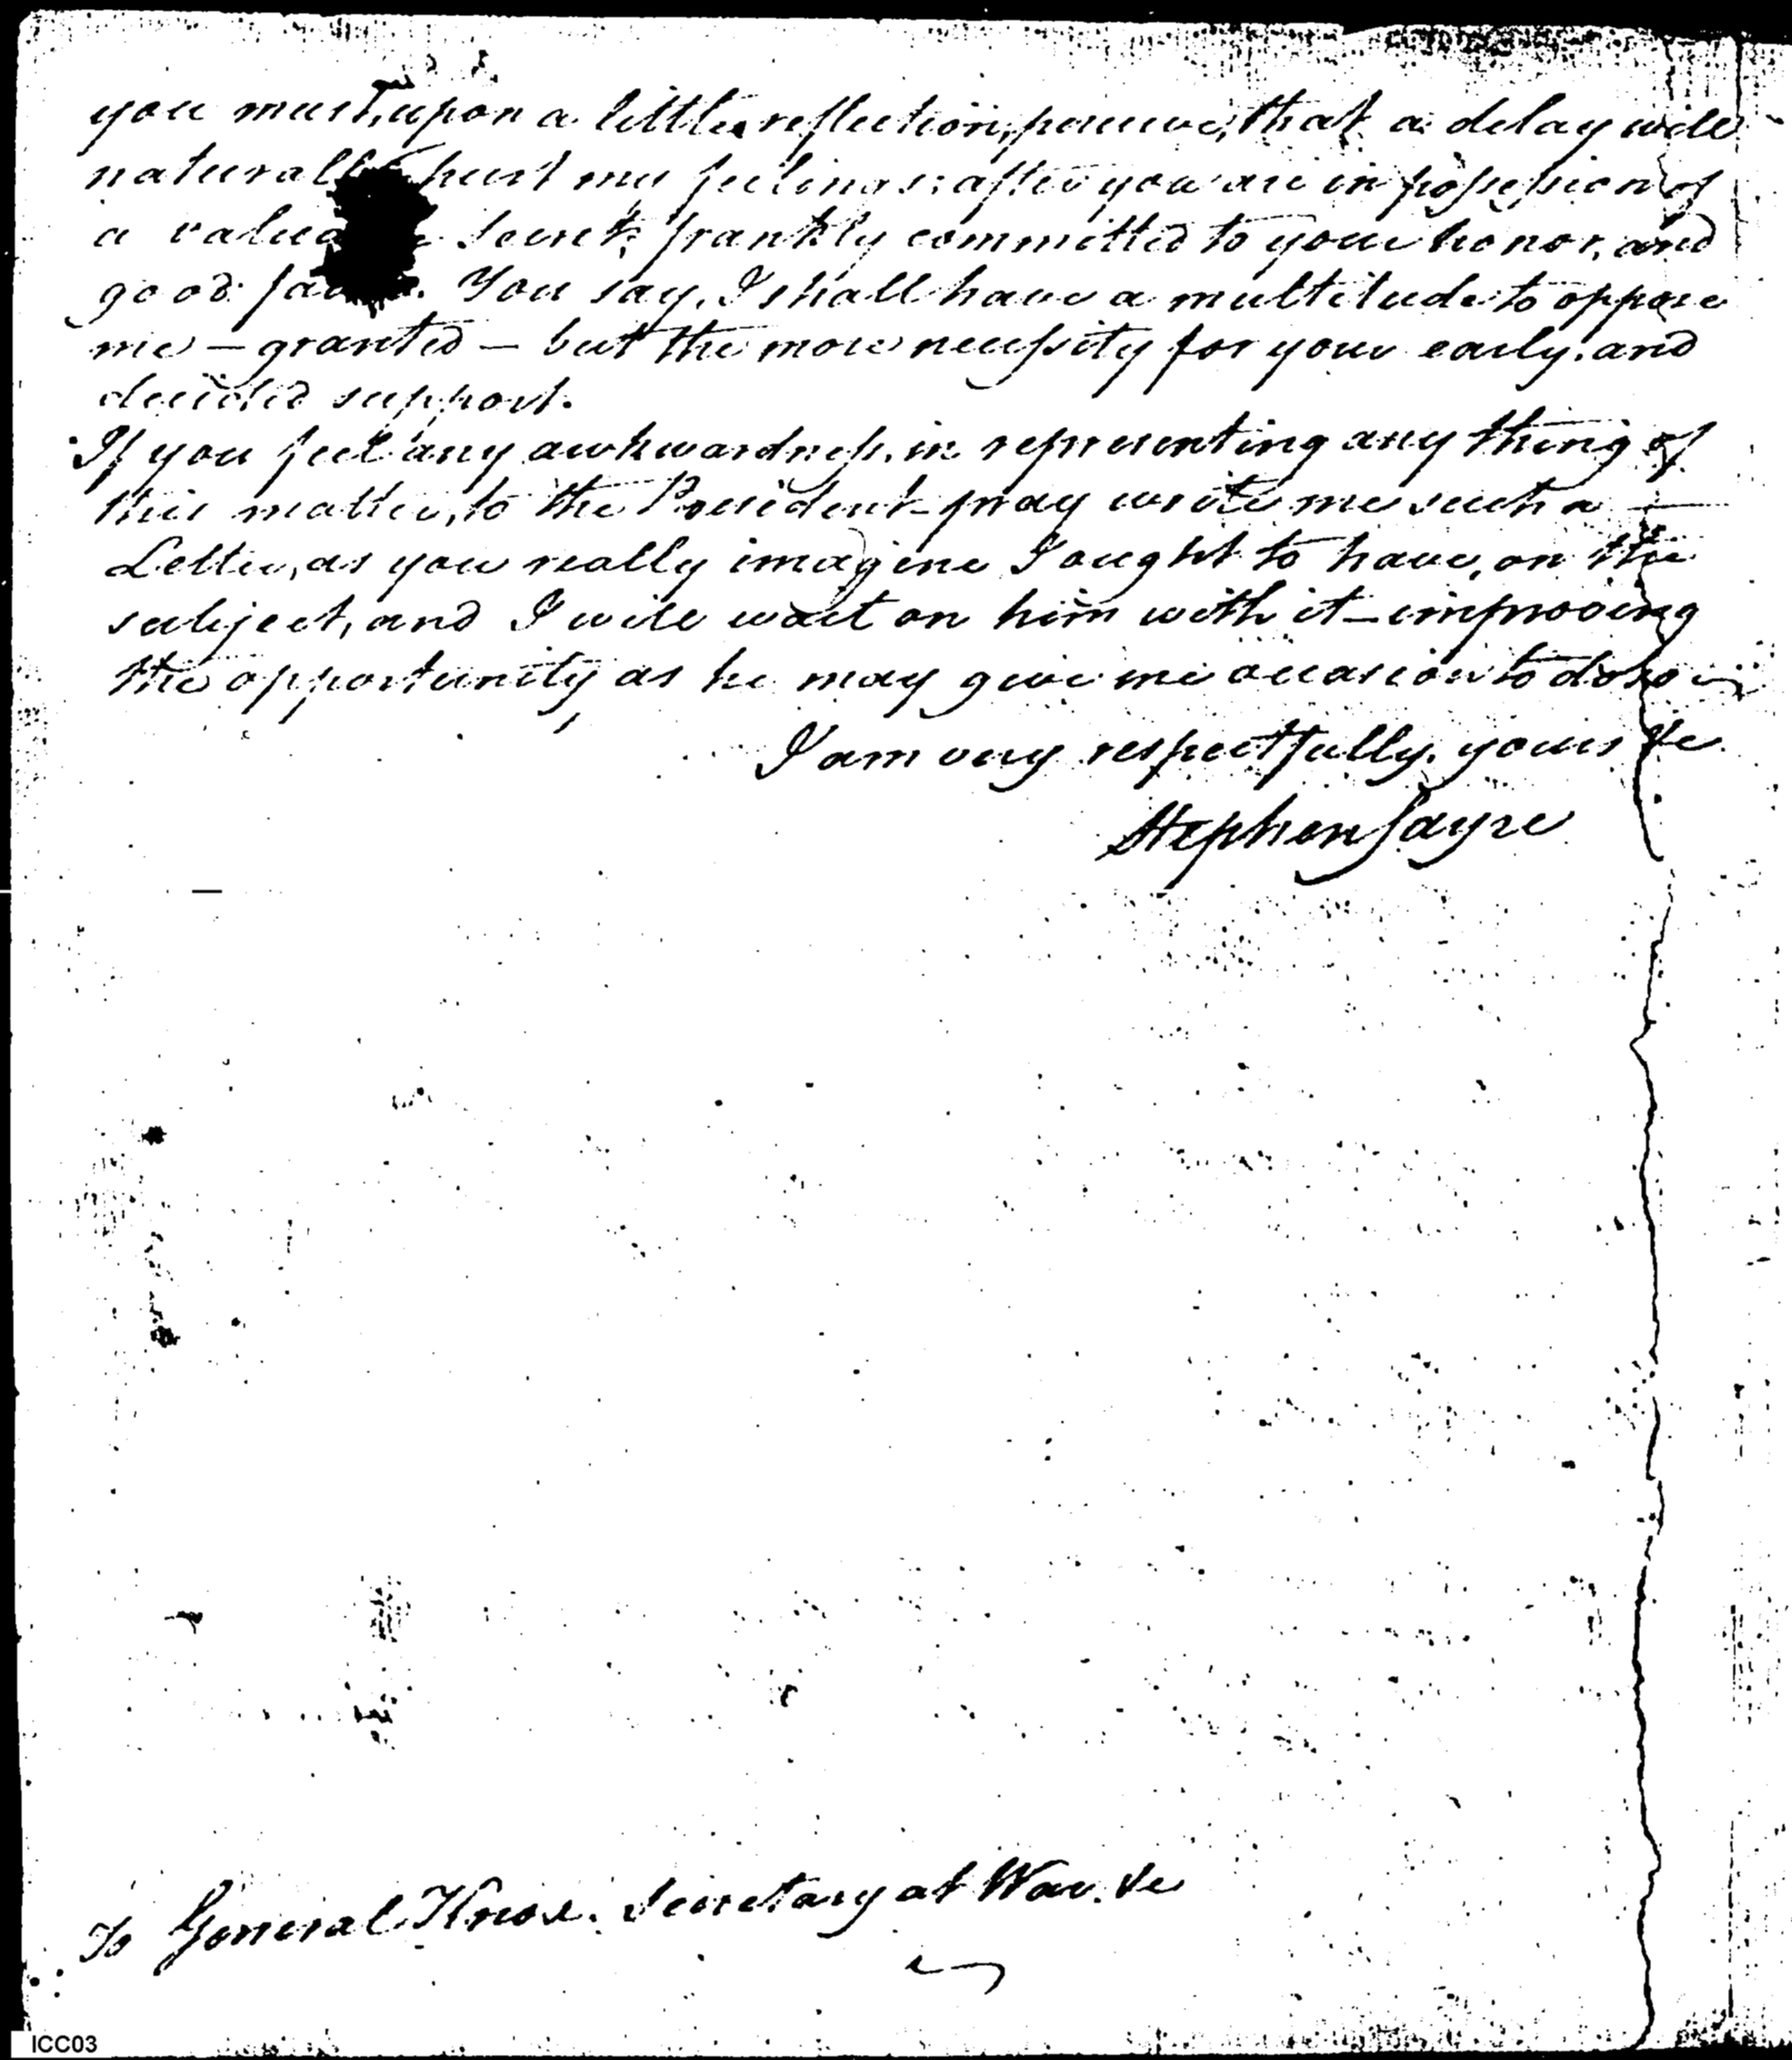 you must, upon a little reflection, perceive, that a delay will
naturally hurt my feelings; after you are in possession of
a valuable secret, frankly committed to your honor, and
good faith. You say, I shall have a multitude to oppose
me — granted — but the more necessity for your early and
decided support.
If you feel any awkwardness, in representing any thing of
this matter, to the President — pray write me such a —
Letter, as you really imagine I ought to have, on the
subject, and I will wait on him with it — improving
the opportunity as he may give me occasion to do so —
I am very respectfully, yours &c
Stephen Sayre
To General Knox. Secretary at War. &c
ICC03